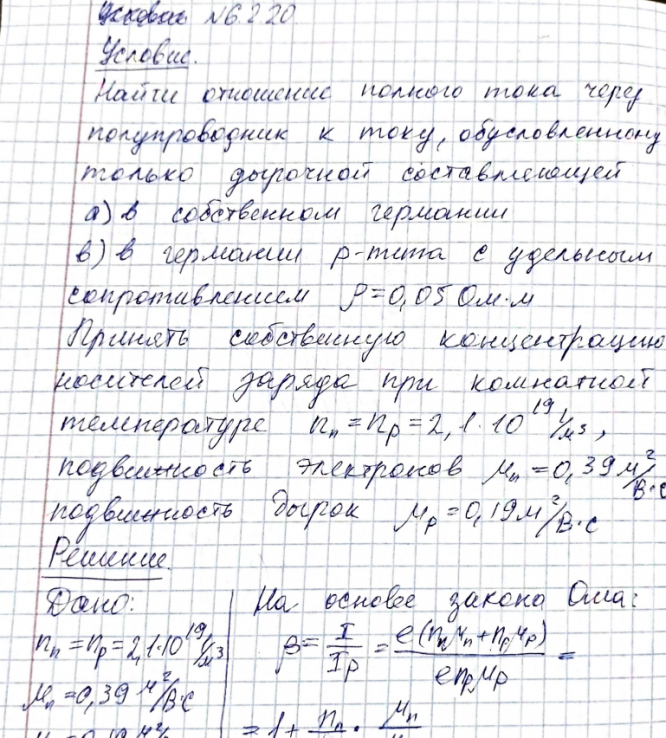 №6.2.20
Условие.
Найти отношение полного тока через
полупроводник к току, обусловленному
только дырочной составляющей
а) в собственном германии
в) в германии p-типа с удельным
сопротивлением ρ=0,05 Ом·м
Принять собственную концентрацию
носителей заряда при комнатной
температуре nₙ=nₚ=2,1·10¹⁹ 1/м³,
подвижность электронов μₙ=0,39 м²/В·с
подвижность дырок μₚ=0,19 м²/В·с
Решение.
Дано:
nₙ=nₚ=2,1·10¹⁹ 1/м³
μₙ=0,39 м²/В·с
На основе закона Ома:
β = I/Iₚ = e(nₙμₙ+nₚμₚ)/enₚμₚ =
= 1+